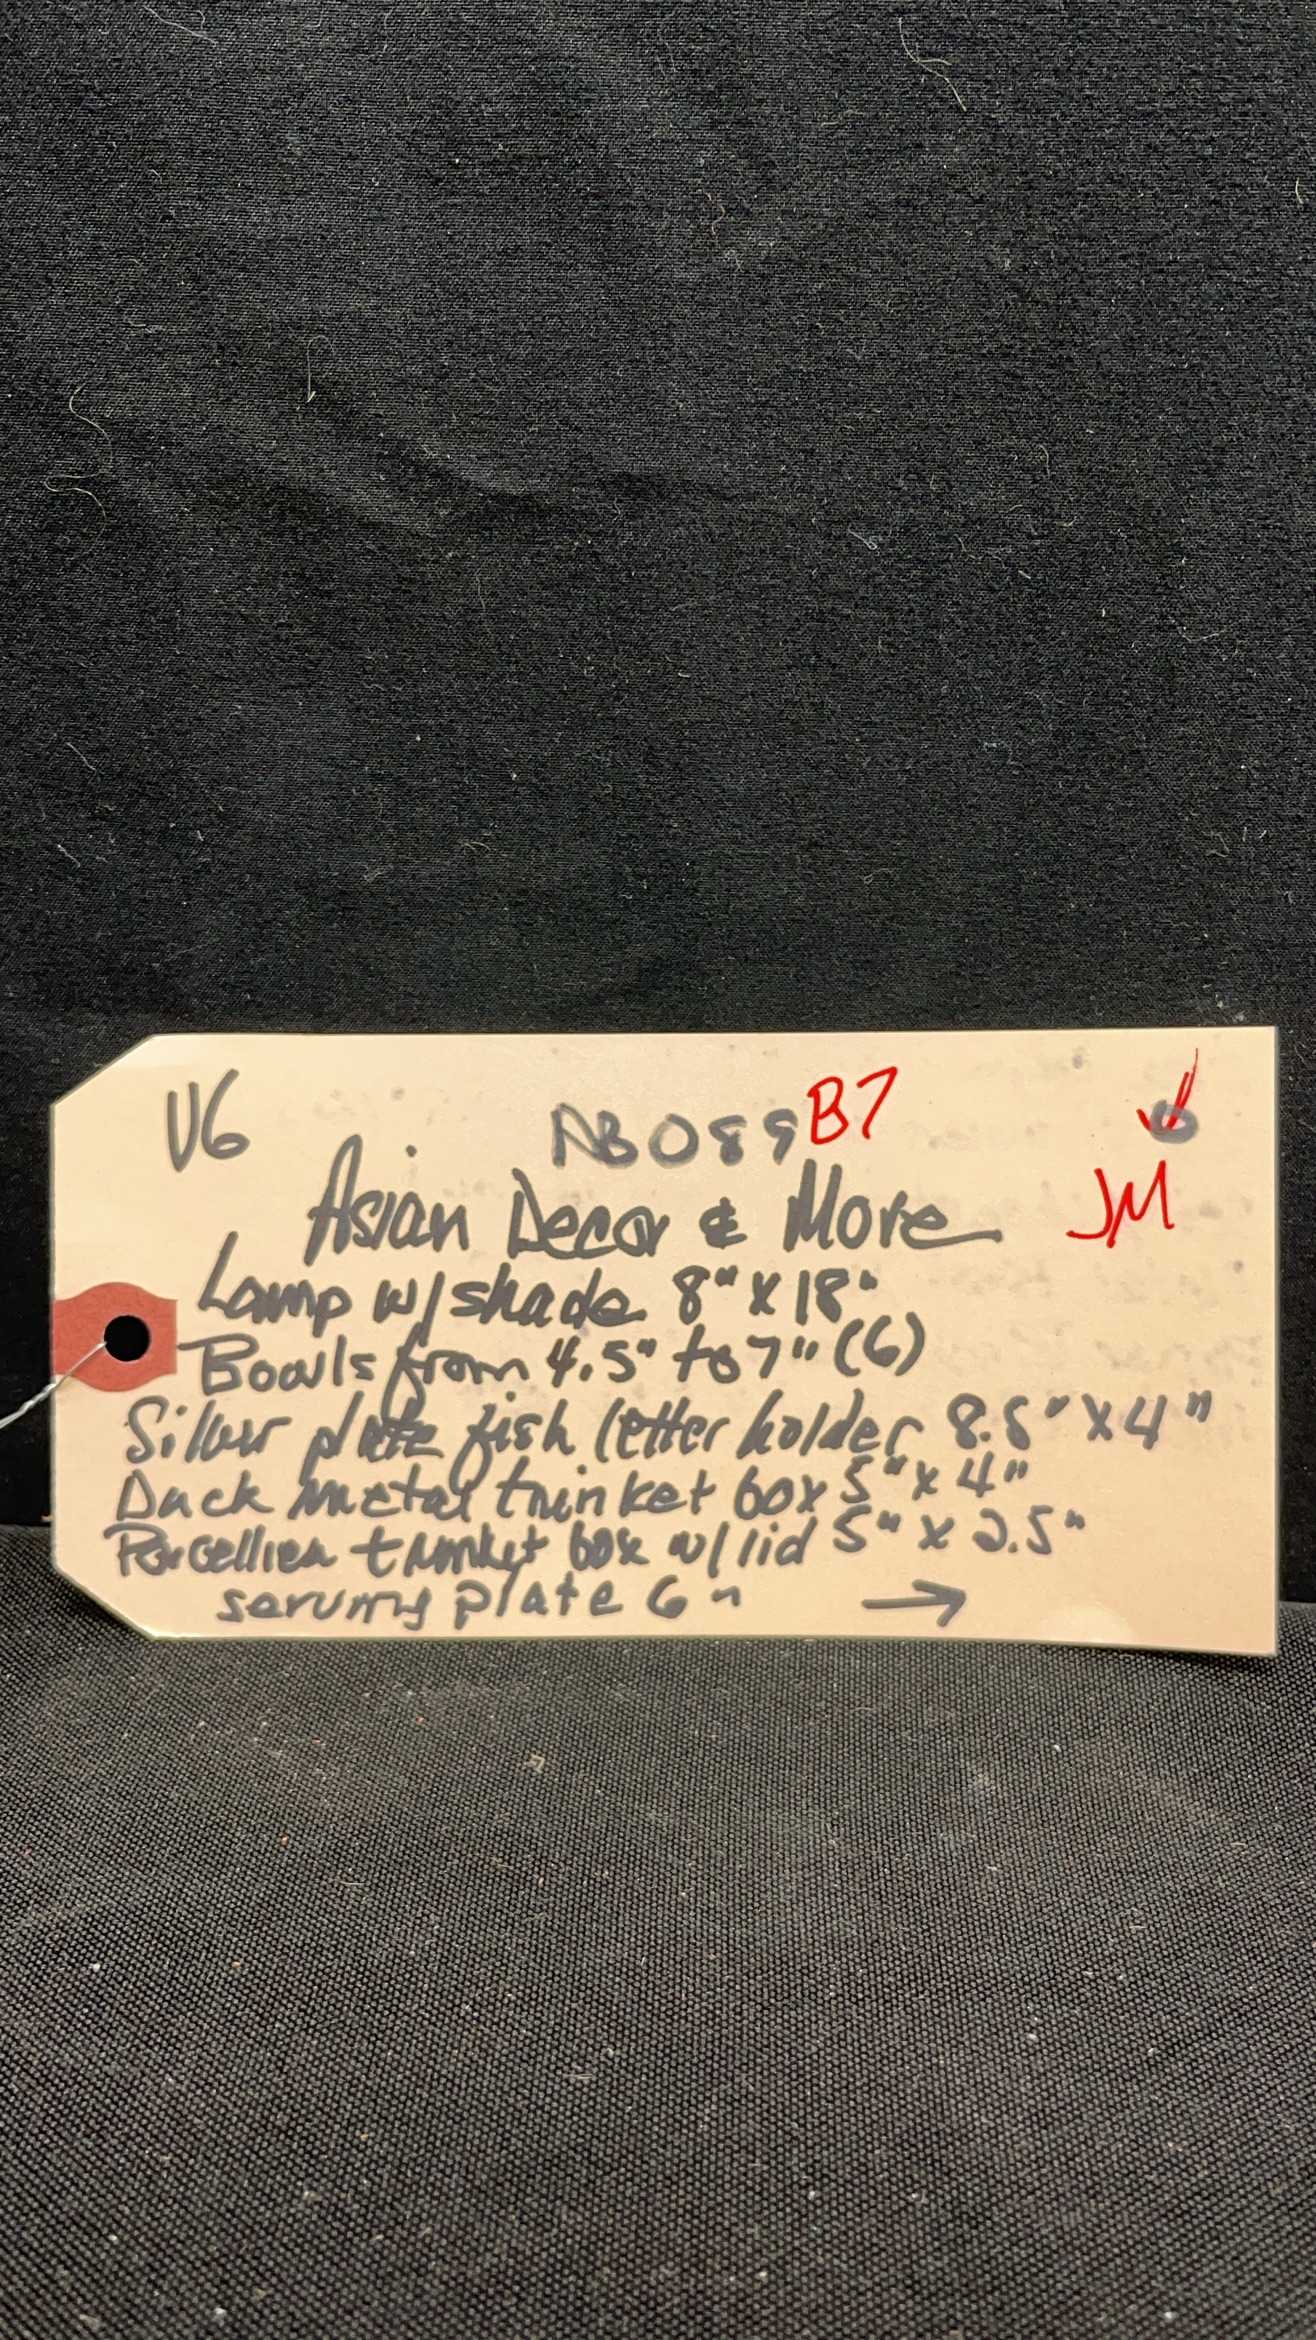 V6 NB089 B7
JM
Asian Decor & More
Lamp w/shade 8" X 18"
Bowls from 4.5" to 7" (6)
Silver plate fish letter holder 8.5" X 4"
Duck metal trinket box 5" x 4"
Porcellien trinket box w/lid 5" x 2.5"
serving plate 6" →